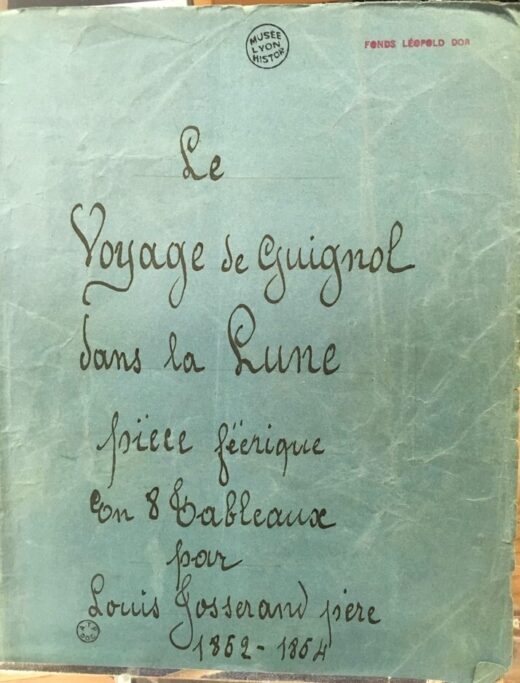 MUSÉE
LYON
HISTOR
FONDS LÉOPOLD DOR
Le
Voyage de Guignol
dans la Lune
pièce féerique
En 8 Tableaux
par
Louis Josserand père
1852-1854